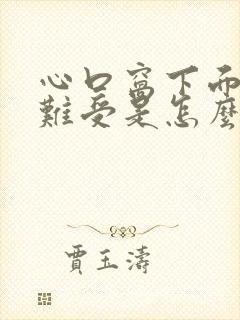 心口窩下面
難受是怎麼
賈玉濤